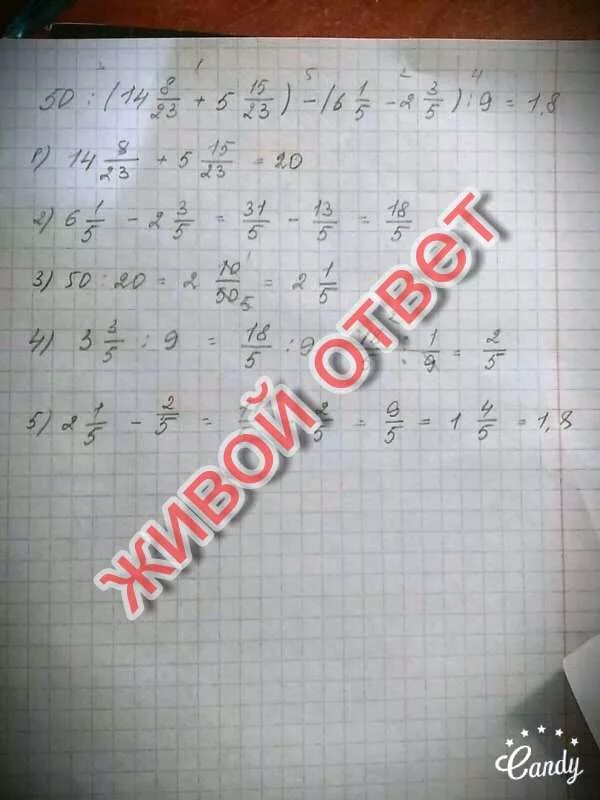 3 1 5 2 4
50 : (14 8/23 + 5 15/23) - (6 1/5 - 2 3/5) : 9 = 1,8
1) 14 8/23 + 5 15/23 = 20
2) 6 1/5 - 2 3/5 = 31/5 - 13/5 = 18/5
3) 50 : 20 = 2 10/50 5 = 2 1/5
4) 3 3/5 : 9 = 18/5 : 9 : 1/9 = 2/5
5) 2 1/5 - 2/5 = 2/5 = 9/5 = 1 4/5 = 1,8
ЖИВОЙ ОТВЕТ
Candy